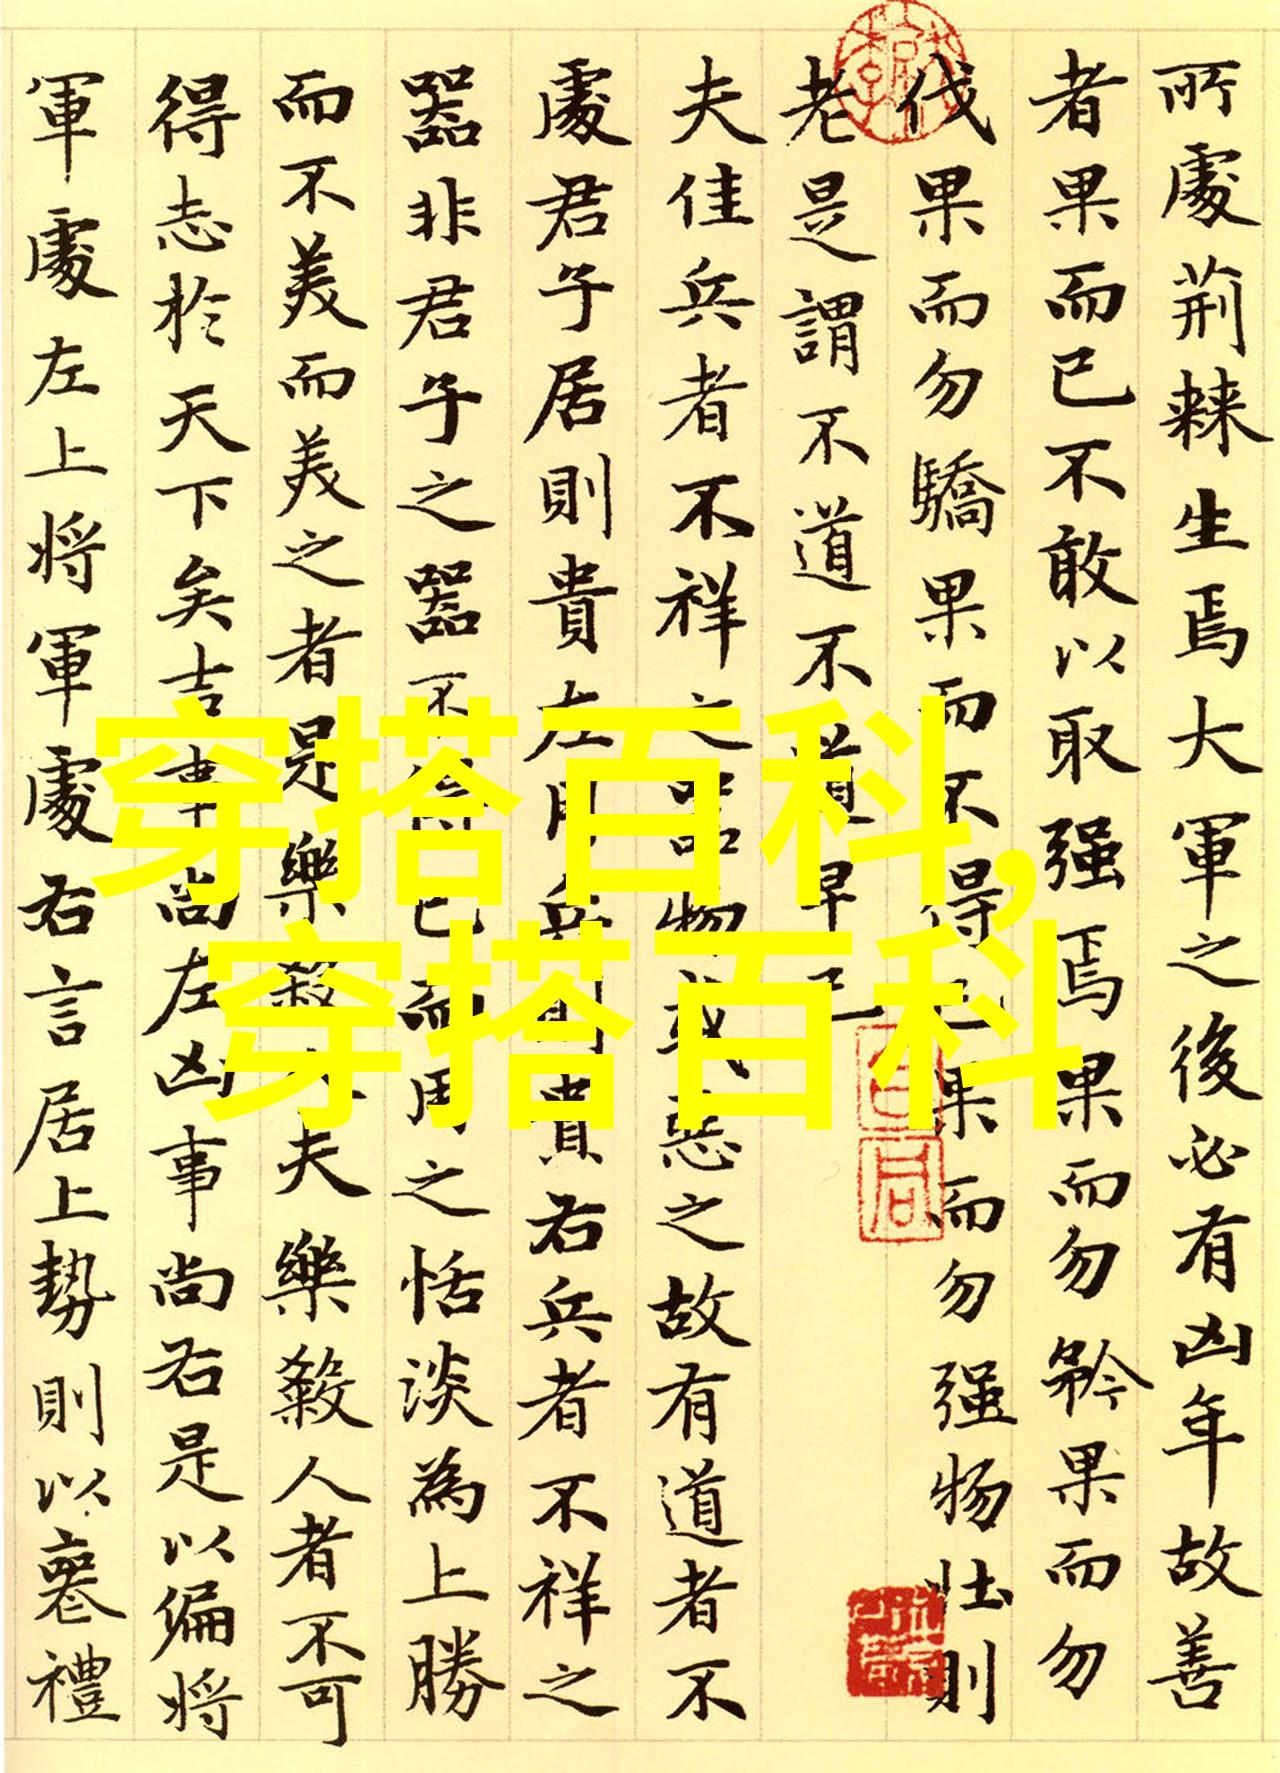 所處荊棘生焉大軍之後必有凶年故善
者果而已不敢以取强焉果而勿矜果而勿
伐果而勿驕果而不得已果而勿强物壯則
老是謂不道不道早已
夫佳兵者不祥之器物或惡之故有道者不
處君子居則貴左用兵則貴右兵者不祥之
器非君子之器不得已而用之恬淡為上勝
而不美而美之者是樂殺人夫樂殺人者不可
得志於天下矣吉事尚左凶事尚右是以偏將
軍處左上將軍處右言居上勢則以喪禮
穿搭百科,
穿搭百科